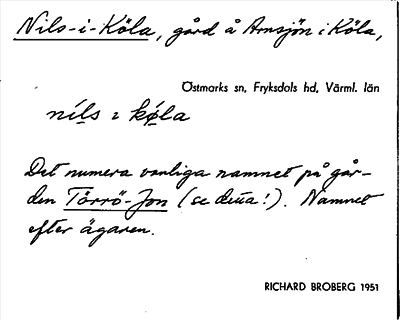 Nils-i-Köla, gård å Arnsjön i Köla,
Östmarks sn, Fryksdals hd, Värml. län
nils ɩ kø̜la
Det numera vanliga namnet på går-
den Törrö-Jon (se detta!). Namnet
efter ägaren.
RICHARD BROBERG 1951